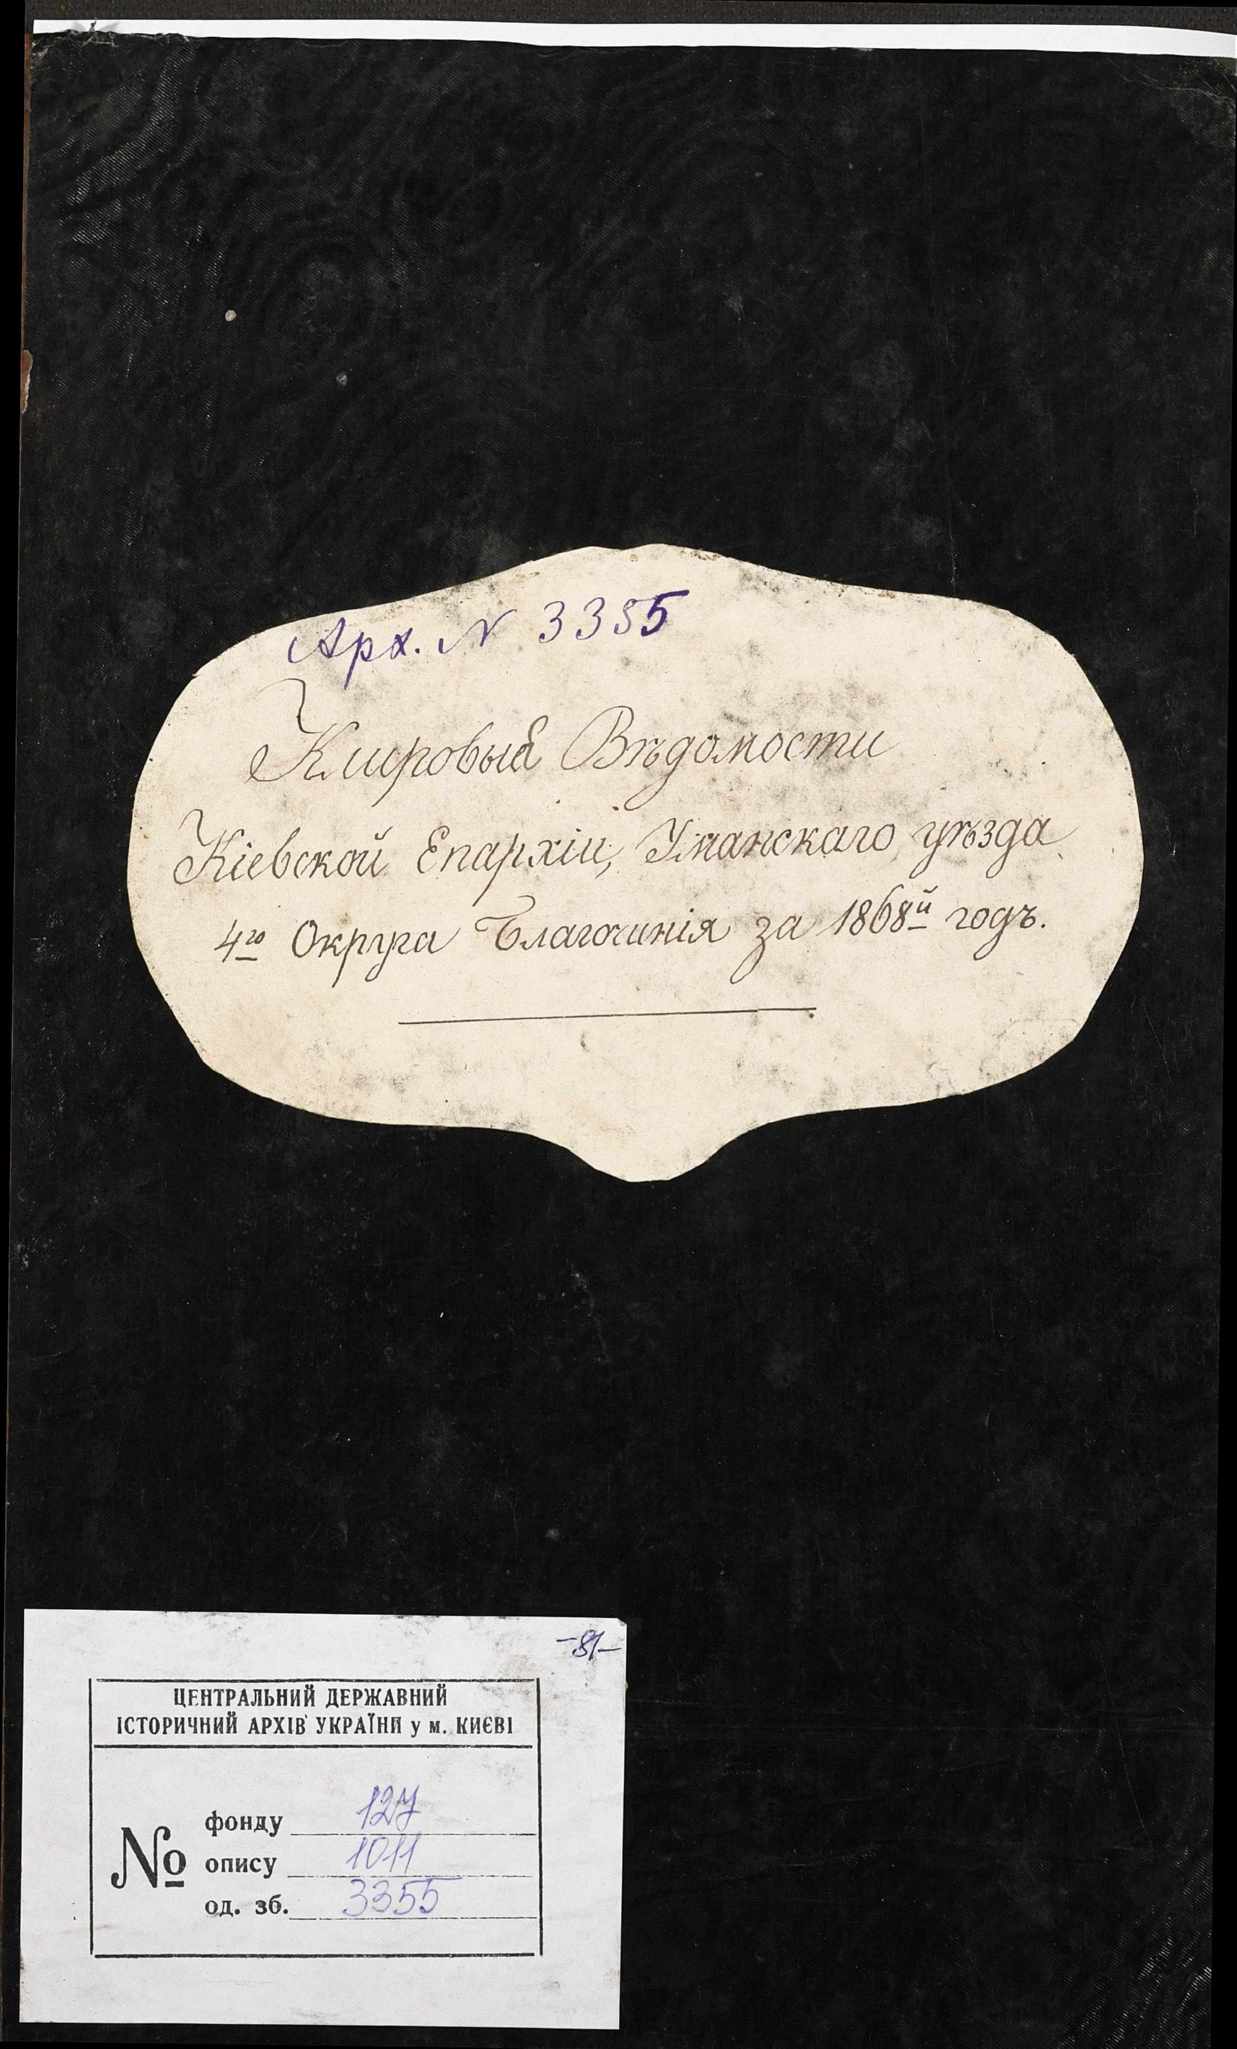 Арх. N 3355
Клировыя Вѣдомости
Кіевской Епархіи, Уманскаго уѣзда
4го Округа Благочинія за 1868й годъ.
-81-
ЦЕНТРАЛЬНИЙ ДЕРЖАВНИЙ
ІСТОРИЧНИЙ АРХІВ УКРАЇНИ у м. КИЄВІ
№
фонду 127
опису 1011
од. зб. 3355